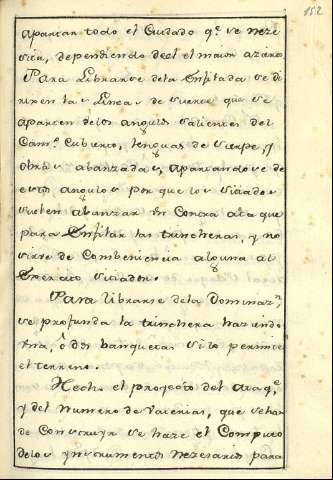 152
apartan todo el Cuidado q.e se neze
sita, dependiendo de el el maior azierto
Para Librarse dela Enfilada se di
rixen las Lineas de suerte que se
aparten delos angulos salientes del
Cam.o Cubierto, lenguas de sierpe, y
obras abanzadas, apartandose de
estos angulos por que los sitiados
suelen abanzar un Contra ataque
para Enfilar las trincheras, y no
sirve de Combeniencia alguna al
Exercito sitiador.
Para librarse dela Dominaz.n
se profunda la trinchera haziendo
una, ô dos banquetas si lo permite
el terreno.
Hecho el proyecto del Ataq.e
y del numero de Vaterias, que se han
de Construyr se haze el Computo
delos ynstrumentos nezesarios para